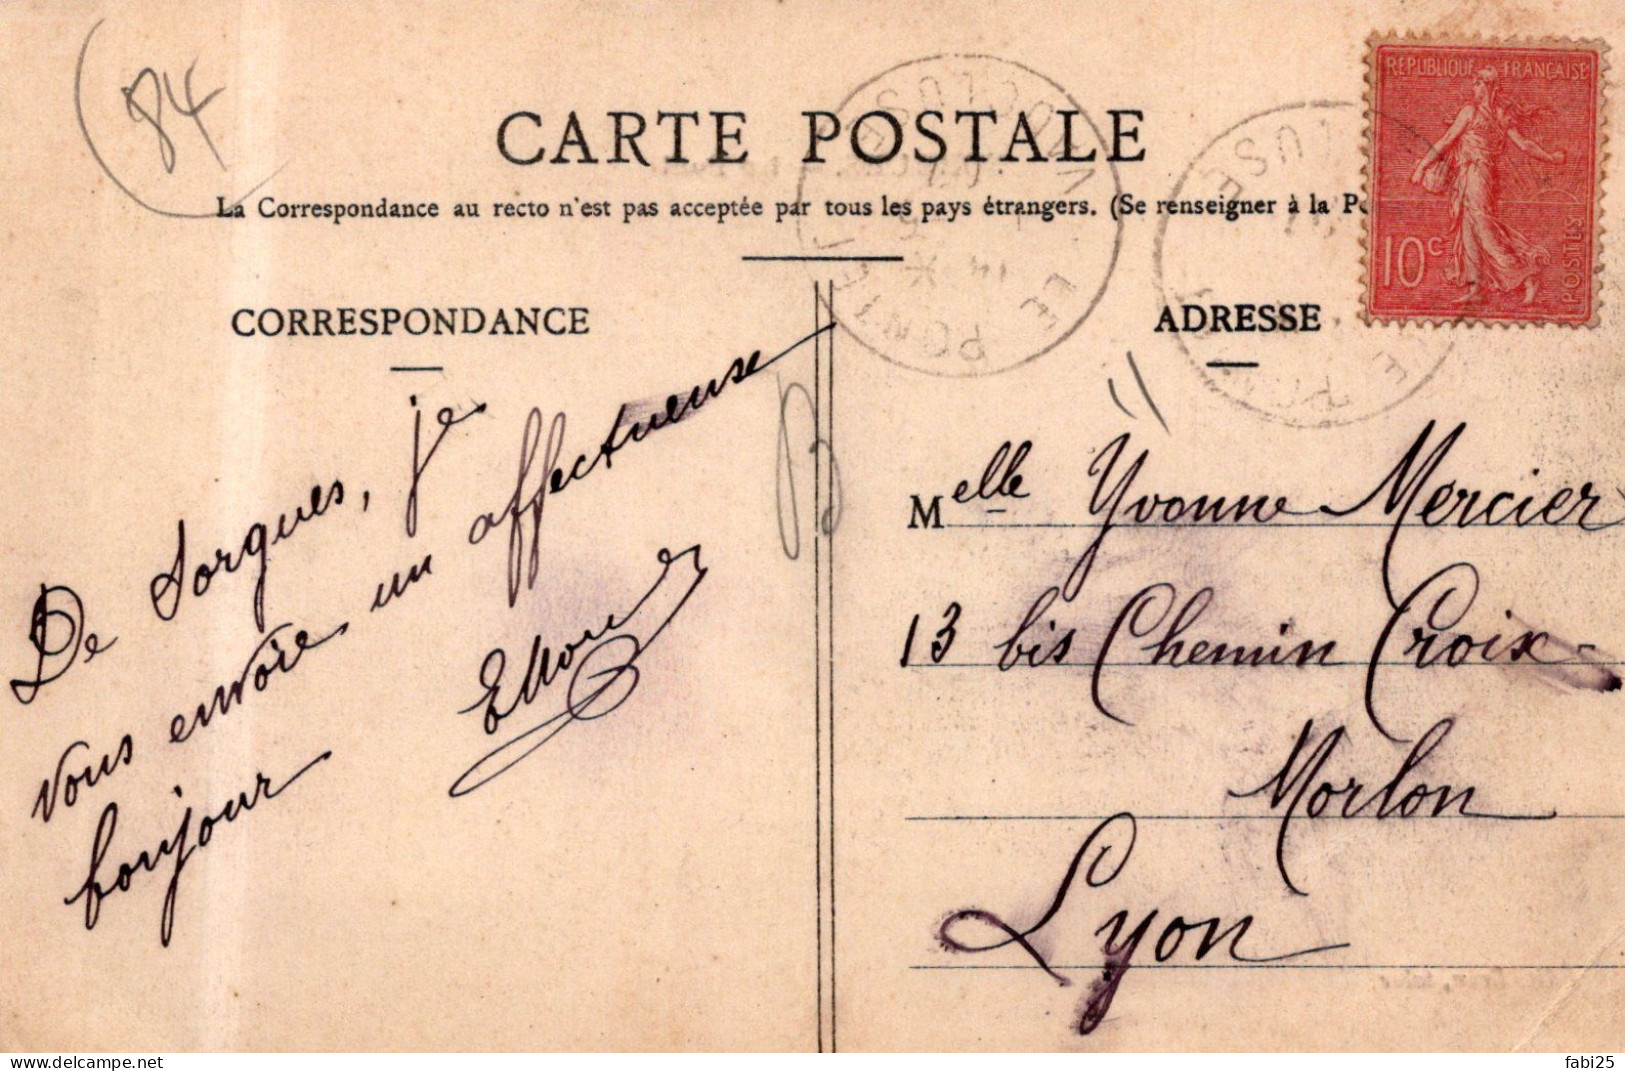 84
CARTE POSTALE
La Correspondance au recto n'est pas acceptée par tous les pays étrangers. (Se renseigner à la P
REPUBLIQUE FRANÇAISE
10c
POSTES
CORRESPONDANCE
De Sorgues, je
vous envoie un affectueuse
bonjour
ADRESSE
Melle Yvonne Mercier
13 bis Chemin Croix-
Morlon
Lyon
LE PONT
fabi25
www.delcampe.net